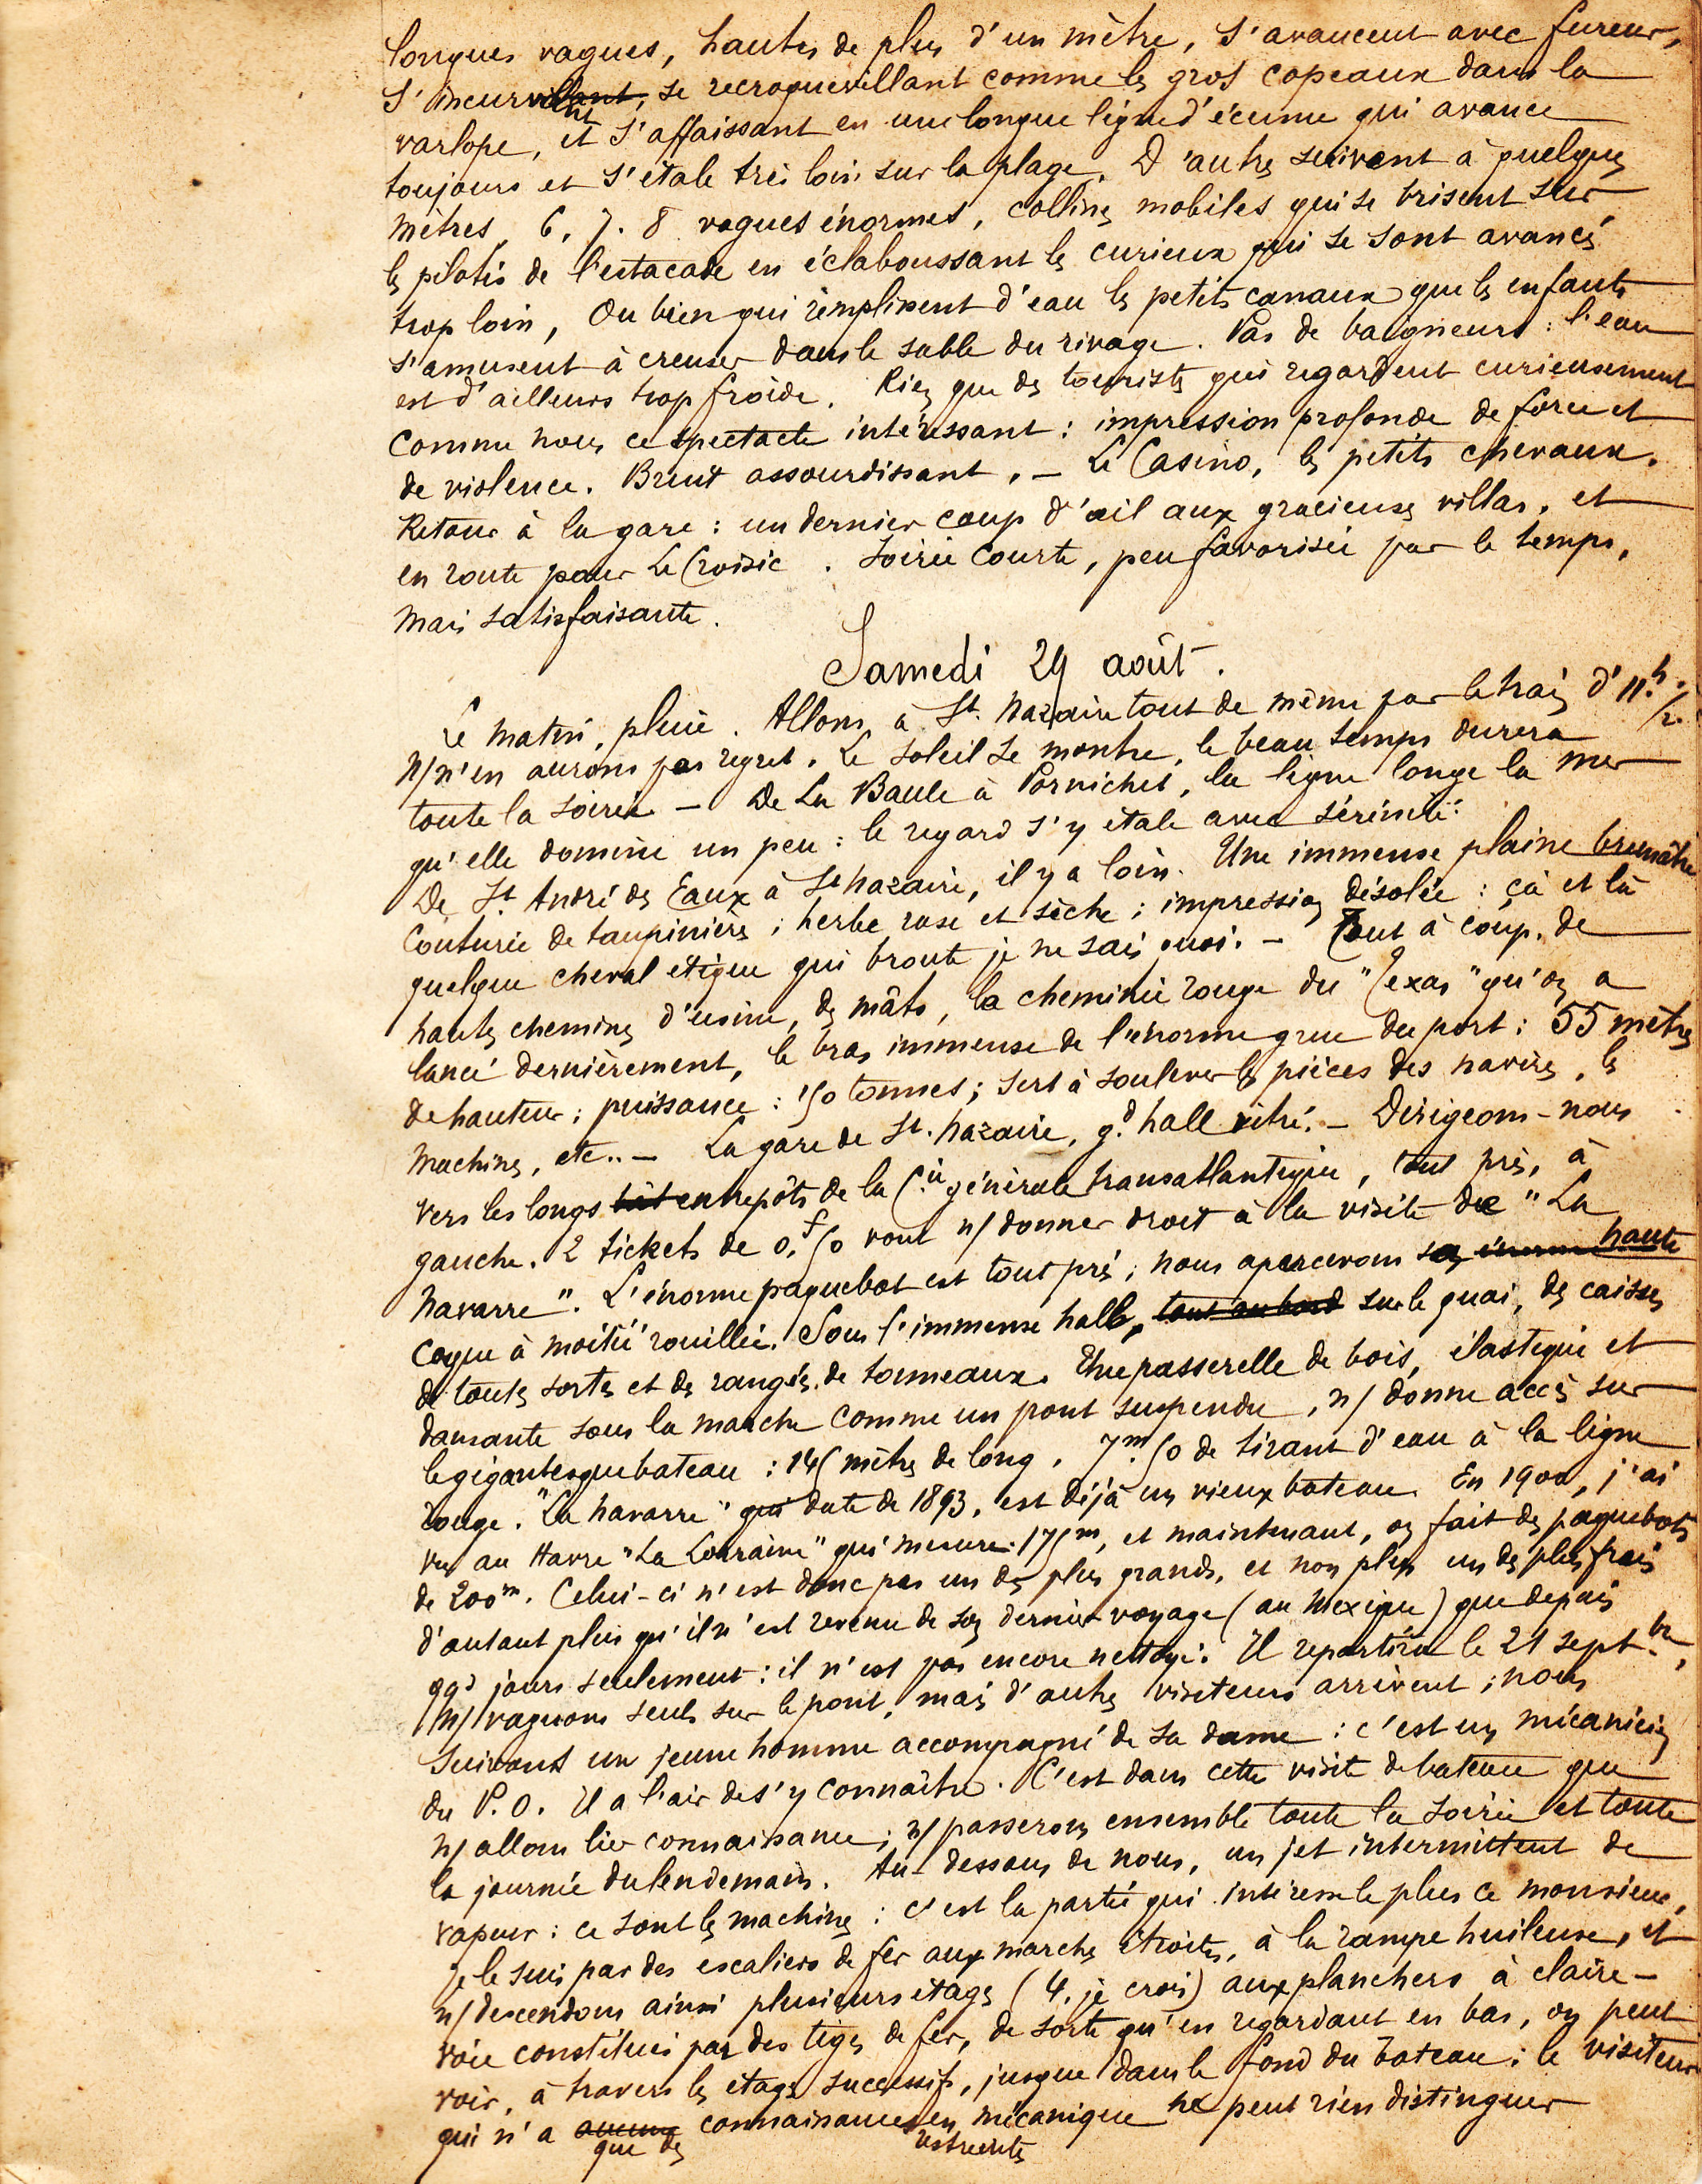 longues vagues, hautes de plus d'un mètre, s'avancent avec fureur,
s'incurvant, se recroquevillant comme les gros copeaux dans la
varlope, et s'affaissant en une longue ligne d'écume qui avance
toujours et s'étale très loin sur la plage. D'autres suivent à quelques
mètres, 6, 7, 8 vagues énormes, collines mobiles qui se brisent sur
les pilotis de l'estacade en éclaboussant les curieux qui se sont avancés
trop loin, Ou bien qui remplissent d'eau les petits canaux que les enfants
s'amusent à creuser dans le sable du rivage. Pas de baigneurs : l'eau
est d'ailleurs trop froide. Rien que des touristes qui regardent curieusement
comme nous ce spectacle intéressant : impression profonde de force et
de violence. Bruit assourdissant. — Le Casino, les petits chevaux.
Retour à la gare : un dernier coup d'œil aux gracieuses villas, et
en route pour Le Croisic. Soirée courte, peu favorisée par le temps,
mais satisfaisante.
Samedi 29 août.
Le matin, pluie. Allons à St. Nazaire tout de même par le train d'11h 1/2.
N/ n'en aurons pas regret. Le soleil se montre, le beau temps durera
toute la soirée — De La Baule à Pornichet, la ligne longe la mer
qu'elle domine un peu : le regard s'y étale avec sérénité.
De St. André des Eaux à St Nazaire, il y a loin. Une immense plaine brunâtre
couturée de taupinières ; herbe rase et sèche ; impression désolée : çà et là
quelque cheval étique qui broute je ne sais quoi. — Tout à coup, de
hautes cheminées d'usine, des mâts, la cheminée rouge du "Texas" qu'on a
lancé dernièrement, le bras immense de l'énorme grue du port : 55 mètres
de hauteur ; puissance : 150 tonnes ; sert à soulever les pièces des navires, les
machines, etc.. — La gare de St. Nazaire, gd hall vitré. — Dirigeons-nous
vers les longs entrepôts de la Cie générale transatlantique, tout près, à
gauche. 2 tickets de 0f,50 vont n/ donner droit à la visite de "La
Navarre". L'énorme paquebot est tout près ; nous apercevons sa haute
coque à moitié rouillée. Sous l'immense hall, tout au bord sur le quai, des caisses
de toutes sortes et des rangées de tonneaux. Une passerelle de bois, élastique et
dansante sous la marche comme un pont suspendu, n/ donne accès sur
le gigantesque bateau : 145 mètres de long, 7m.50 de tirant d'eau à la ligne
rouge. "La Navarre" qui date de 1893, est déjà un vieux bateau. En 1900, j'ai
vu au Havre "La Lorraine" qui mesure 175m, et maintenant, on fait des paquebots
de 200m. Celui-ci n'est donc pas un des plus grands, et non plus un des plus frais
d'autant plus qu'il n'est revenu de son dernier voyage (au Mexique) que depuis
qqs jours seulement : il n'est pas encore nettoyé. Il repartira le 21 septbre.
N/ vaguons seuls sur le pont, mais d'autres visiteurs arrivent ; nous
suivons un jeune homme accompagné de sa dame : c'est un mécanicien
du P.O. Il a l'air de s'y connaître. C'est dans cette visite de bateau que
n/ allons lier connaissance ; n/ passerons ensemble toute la soirée et toute
la journée du lendemain. Au-dessous de nous, un jet intermittent de
vapeur : ce sont les machines : c'est la partie qui intéresse le plus ce monsieur,
je le suis par des escaliers de fer aux marches étroites, à la rampe huileuse, et
n/ descendons ainsi plusieurs étages (4, je crois) aux planchers à claire-
voie constitués par des tiges de fer, de sorte qu'en regardant en bas, on peut
voir, à travers les étages successifs, jusque dans le fond du bateau ; le visiteur
qui n'a aucune connaissances en mécanique ne peut rien distinguer
que des restreintes